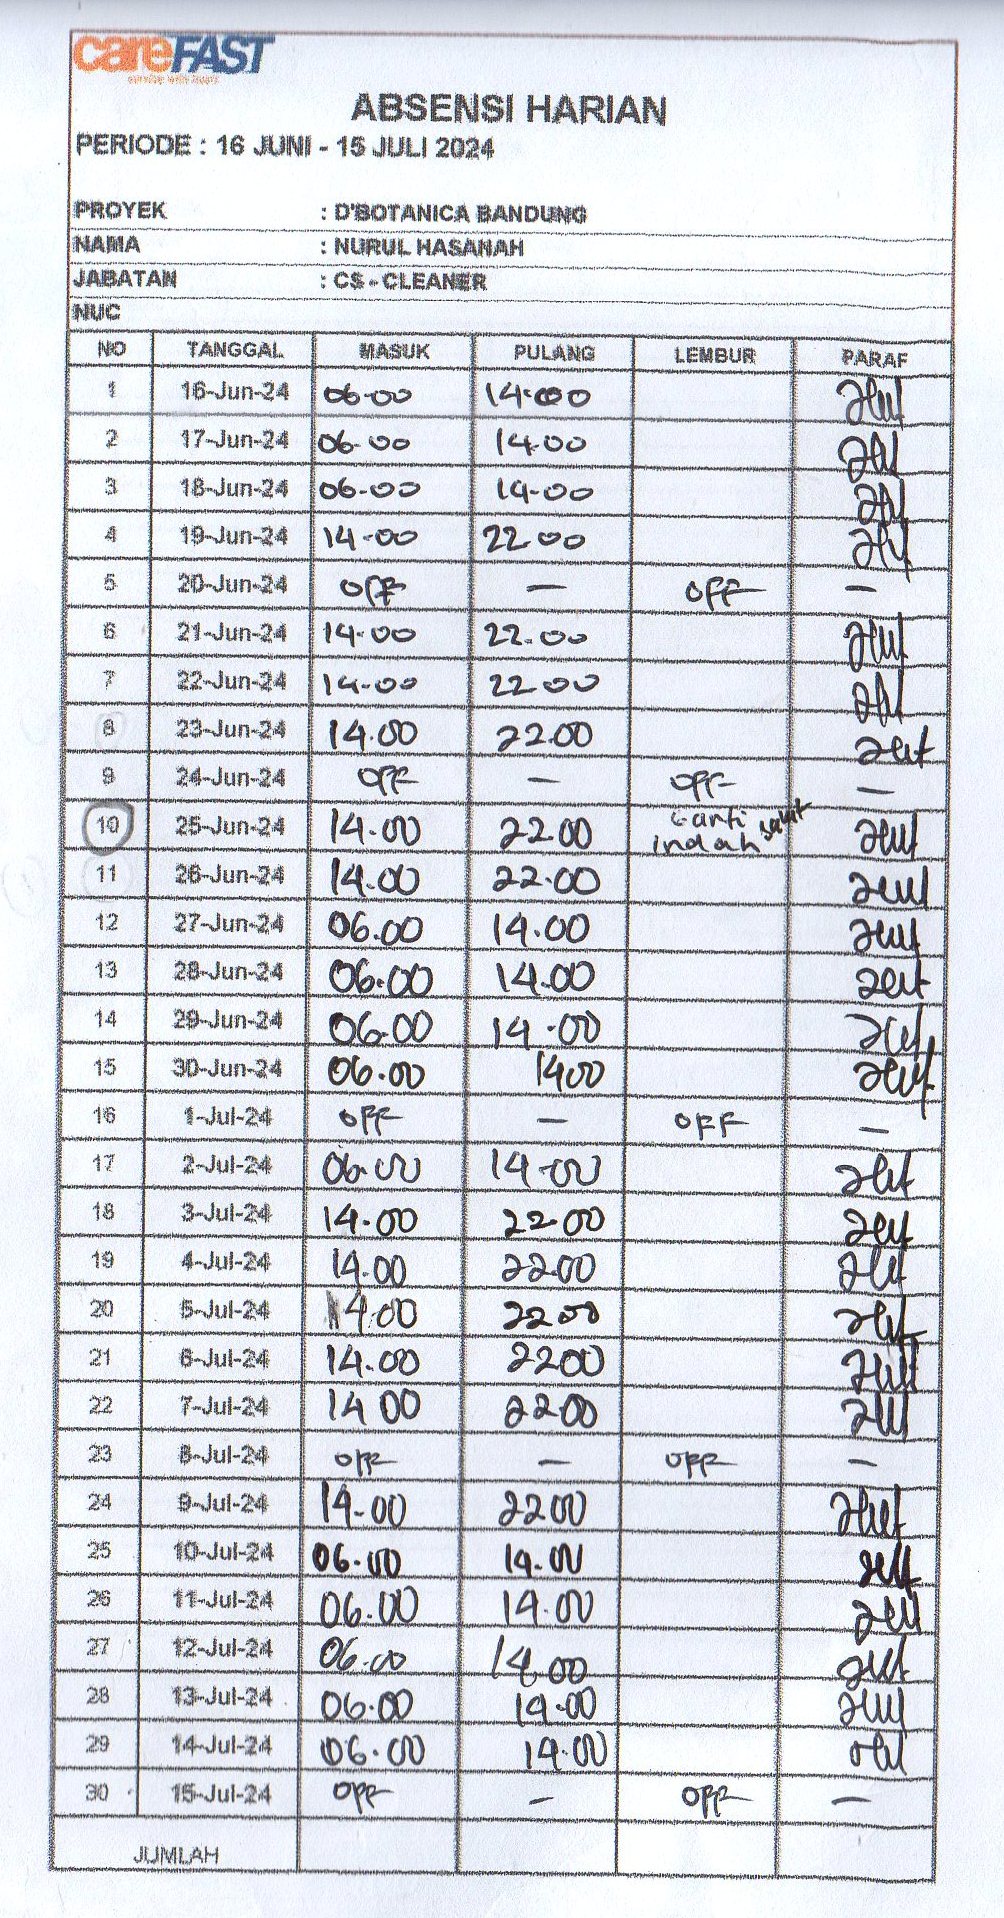 careFAST
service with heart
ABSENSI HARIAN
PERIODE : 16 JUNI - 15 JULI 2024
PROYEK : D'BOTANICA BANDUNG
NAMA : NURUL HASANAH
JABATAN : CS - CLEANER
NUC
NO TANGGAL MASUK PULANG LEMBUR PARAF
1 16-Jun-24 06-00 14.000
2 17-Jun-24 06.00 14.00
3 18-Jun-24 06-00 14-00
4 19-Jun-24 14-00 22.00
5 20-Jun-24 OFF — OFF —
6 21-Jun-24 14-00 22.00
7 22-Jun-24 14-00 22.00
8 23-Jun-24 14.00 22.00
9 24-Jun-24 OFF — OFF —
10 25-Jun-24 14.00 22.00 Ganti indah sakit
11 26-Jun-24 14.00 22.00
12 27-Jun-24 06.00 14.00
13 28-Jun-24 06.00 14.00
14 29-Jun-24 06.00 14.00
15 30-Jun-24 06.00 1400
16 1-Jul-24 OFF — OFF —
17 2-Jul-24 06.00 14-00
18 3-Jul-24 14.00 22.00
19 4-Jul-24 14.00 22.00
20 5-Jul-24 14.00 22.00
21 6-Jul-24 14.00 2200
22 7-Jul-24 14 00 22.00
23 8-Jul-24 OFF — OFF —
24 9-Jul-24 14.00 2200
25 10-Jul-24 06.00 14.00
26 11-Jul-24 06.00 14.00
27 12-Jul-24 06.00 14.00
28 13-Jul-24 06.00 14.00
29 14-Jul-24 06.00 14.00
30 15-Jul-24 OFF — OFF —
JUMLAH